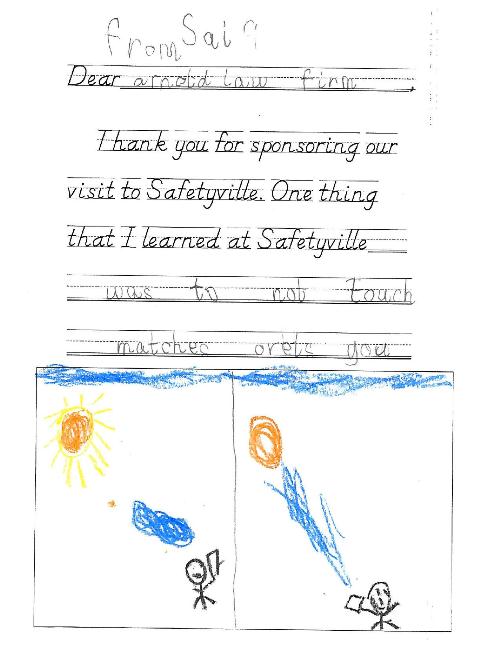 from Sai
Dear arnold law firm,
Thank you for sponsoring our
visit to Safetyville. One thing
that I learned at Safetyville
was to not touch
matches orets you